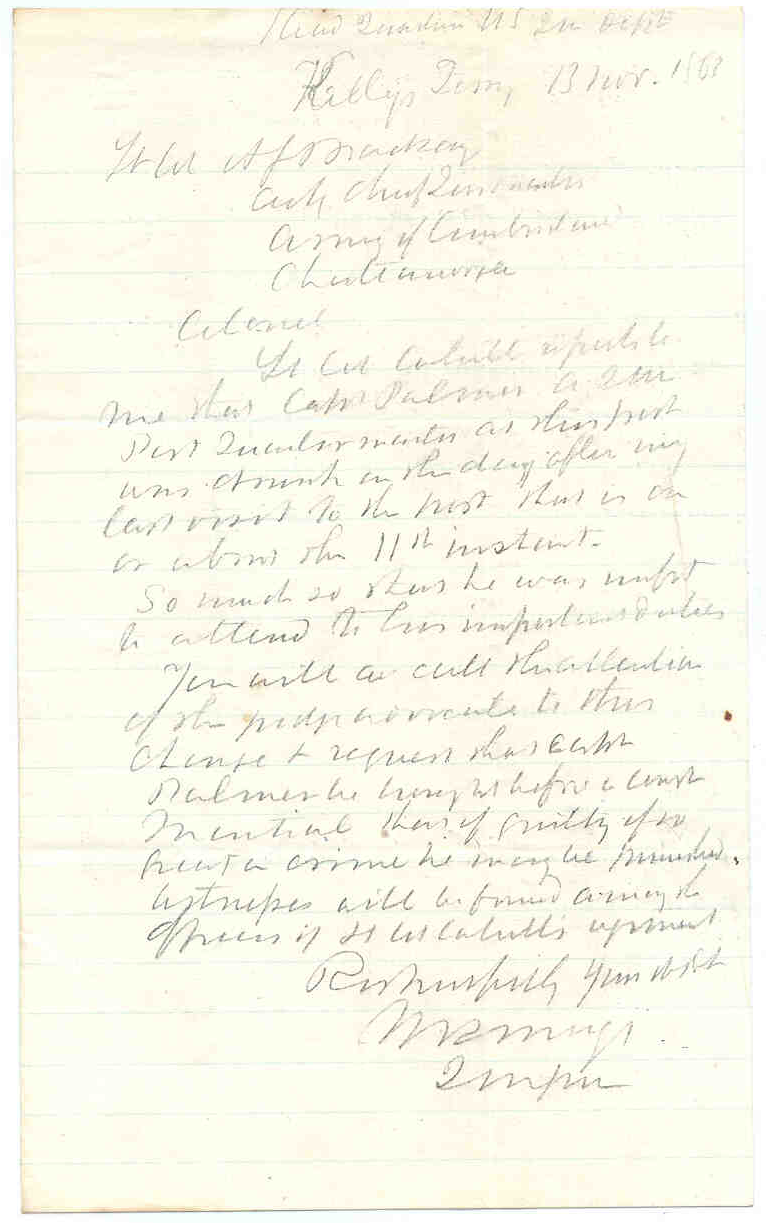 Head Quarters US Qm Dept
Kellys Ferry 13 Nov. 1863
Lt Col A J Mackay
Act Chief Quarmaster
Army of Cumberland
Chattanooga
Colonel
Lt Col Cahill reports to
me that Capt Palmer A Q M
Post Quartermaster at this post
was drunk on the day after my
last visit to the post that is on
or about the 11th instant.
So much so that he was unfit
to attend to his important duties
You will call the attention
of the judge advocate to this
charge & request that Capt
Palmer be brought before a court
martial that if guilty of so
great a crime he may be punished.
Witnesses will be found among the
officers of Lt Col Cahills regiment
Respectfully Your obt svt
M C Meigs
Qmgen